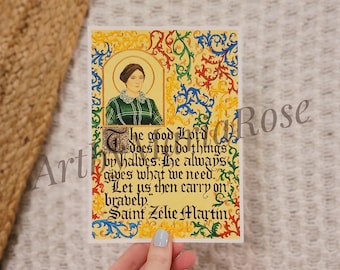 The good Lord
does not do things
by halves. He always
gives what we need.
"Let us then carry on
bravely"
-Saint Zélie Martin